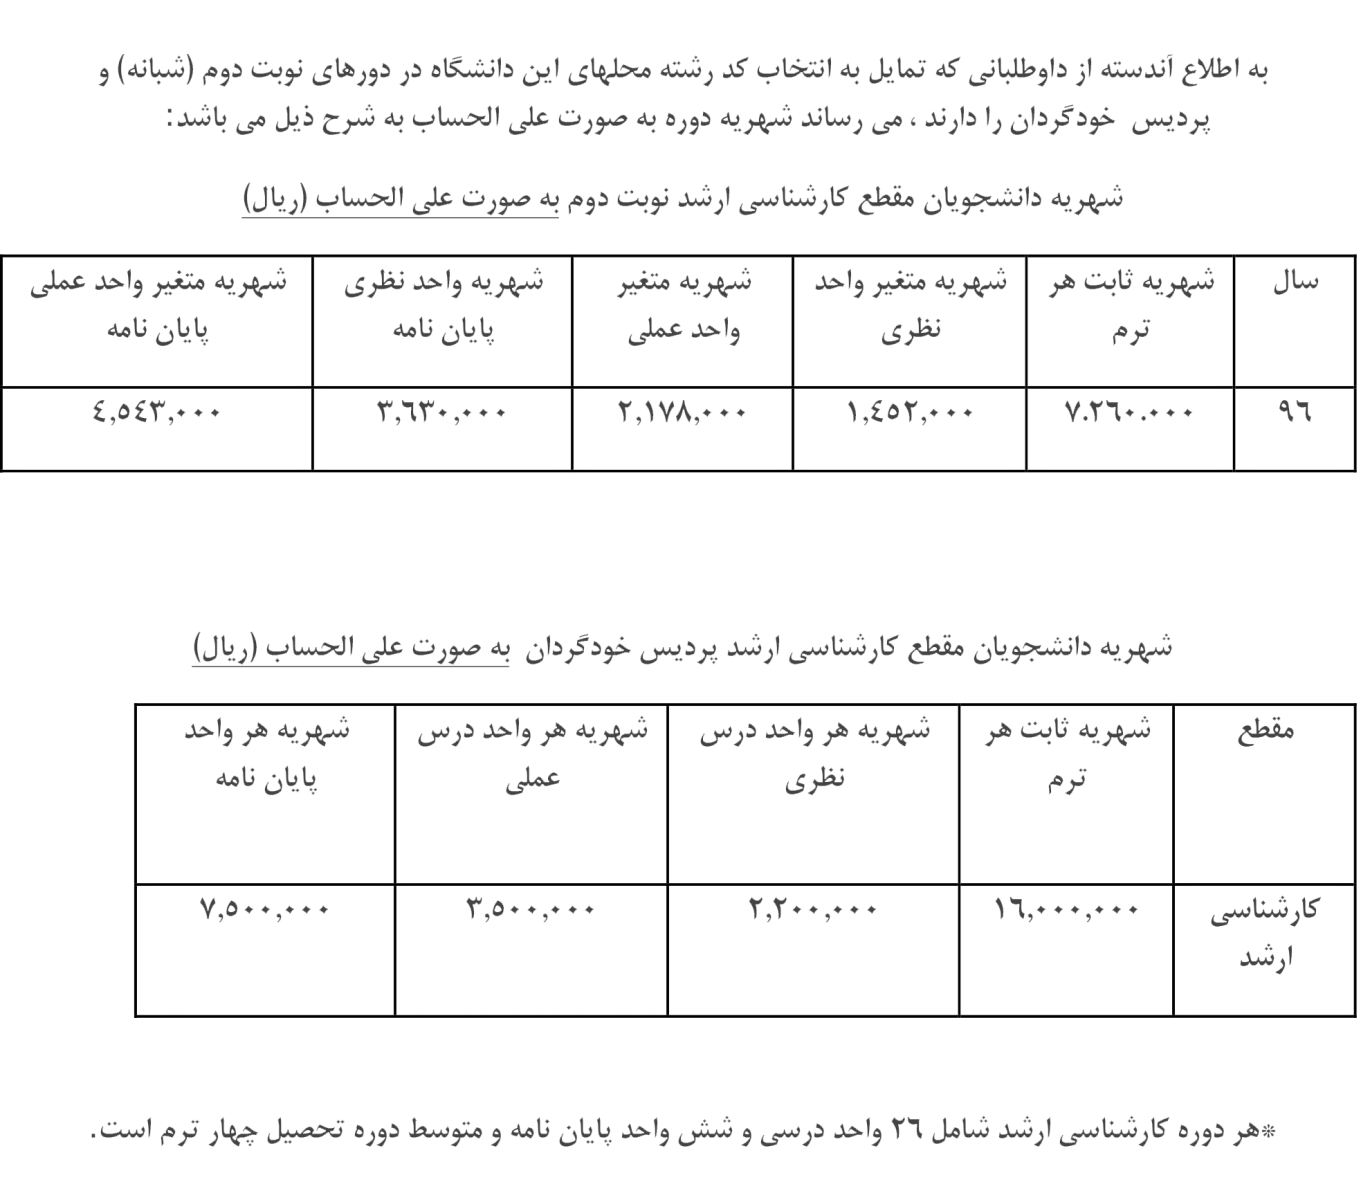 به اطلاع آندسته از داوطلبانی که تمایل به انتخاب کد رشته محلهای این دانشگاه در دورهای نوبت دوم (شبانه) و
پردیس خودگردان را دارند ، می رساند شهریه دوره به صورت علی الحساب به شرح ذیل می باشد:
شهریه دانشجویان مقطع کارشناسی ارشد نوبت دوم به صورت علی الحساب (ریال)
سال شهریه ثابت هر شهریه متغیر واحد شهریه متغیر شهریه واحد نظری شهریه متغیر واحد عملی
ترم نظری واحد عملی پایان نامه پایان نامه
٩٦ ٧.٢٦٠.٠٠٠ ١,٤٥٢,٠٠٠ ٢,١٧٨,٠٠٠ ٣,٦٣٠,٠٠٠ ٤,٥٤٣,٠٠٠
شهریه دانشجویان مقطع کارشناسی ارشد پردیس خودگردان به صورت علی الحساب (ریال)
مقطع شهریه ثابت هر شهریه هر واحد درس شهریه هر واحد درس شهریه هر واحد
ترم نظری عملی پایان نامه
کارشناسی ١٦,٠٠٠,٠٠٠ ٢,٢٠٠,٠٠٠ ٣,٥٠٠,٠٠٠ ٧,٥٠٠,٠٠٠
ارشد
*هر دوره کارشناسی ارشد شامل ٢٦ واحد درسی و شش واحد پایان نامه و متوسط دوره تحصیل چهار ترم است.